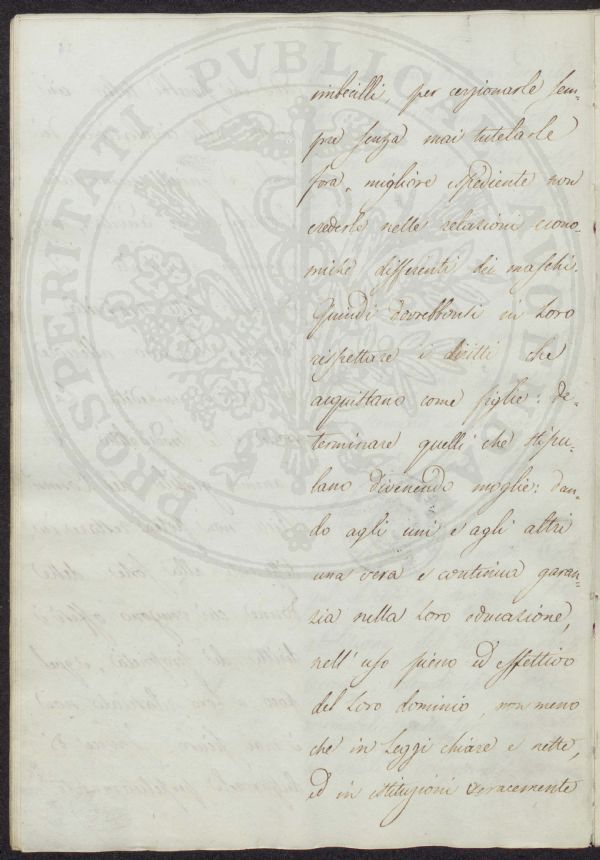 PROSPERITATI PUBLICAE AUGENDAE
imbecilli, per cezionarle sem-
pre senza mai tutelarle
fora, migliore espediente non
crederle nelle relazioni econo-
miche differenti dei maschi.
Quindi dovrebbonsi in Loro
rispettare i diritti che
acquistano come figlie: de-
terminare quelli che stipu-
lano divenendo moglie: dan-
do agli uni e agli altri
una vera e continua garan-
zia nella Loro educazione,
nell'uso pieno ed effettivo
del Loro dominio, non meno
che in Leggi chiare e nette,
ed in istituzioni veracemente